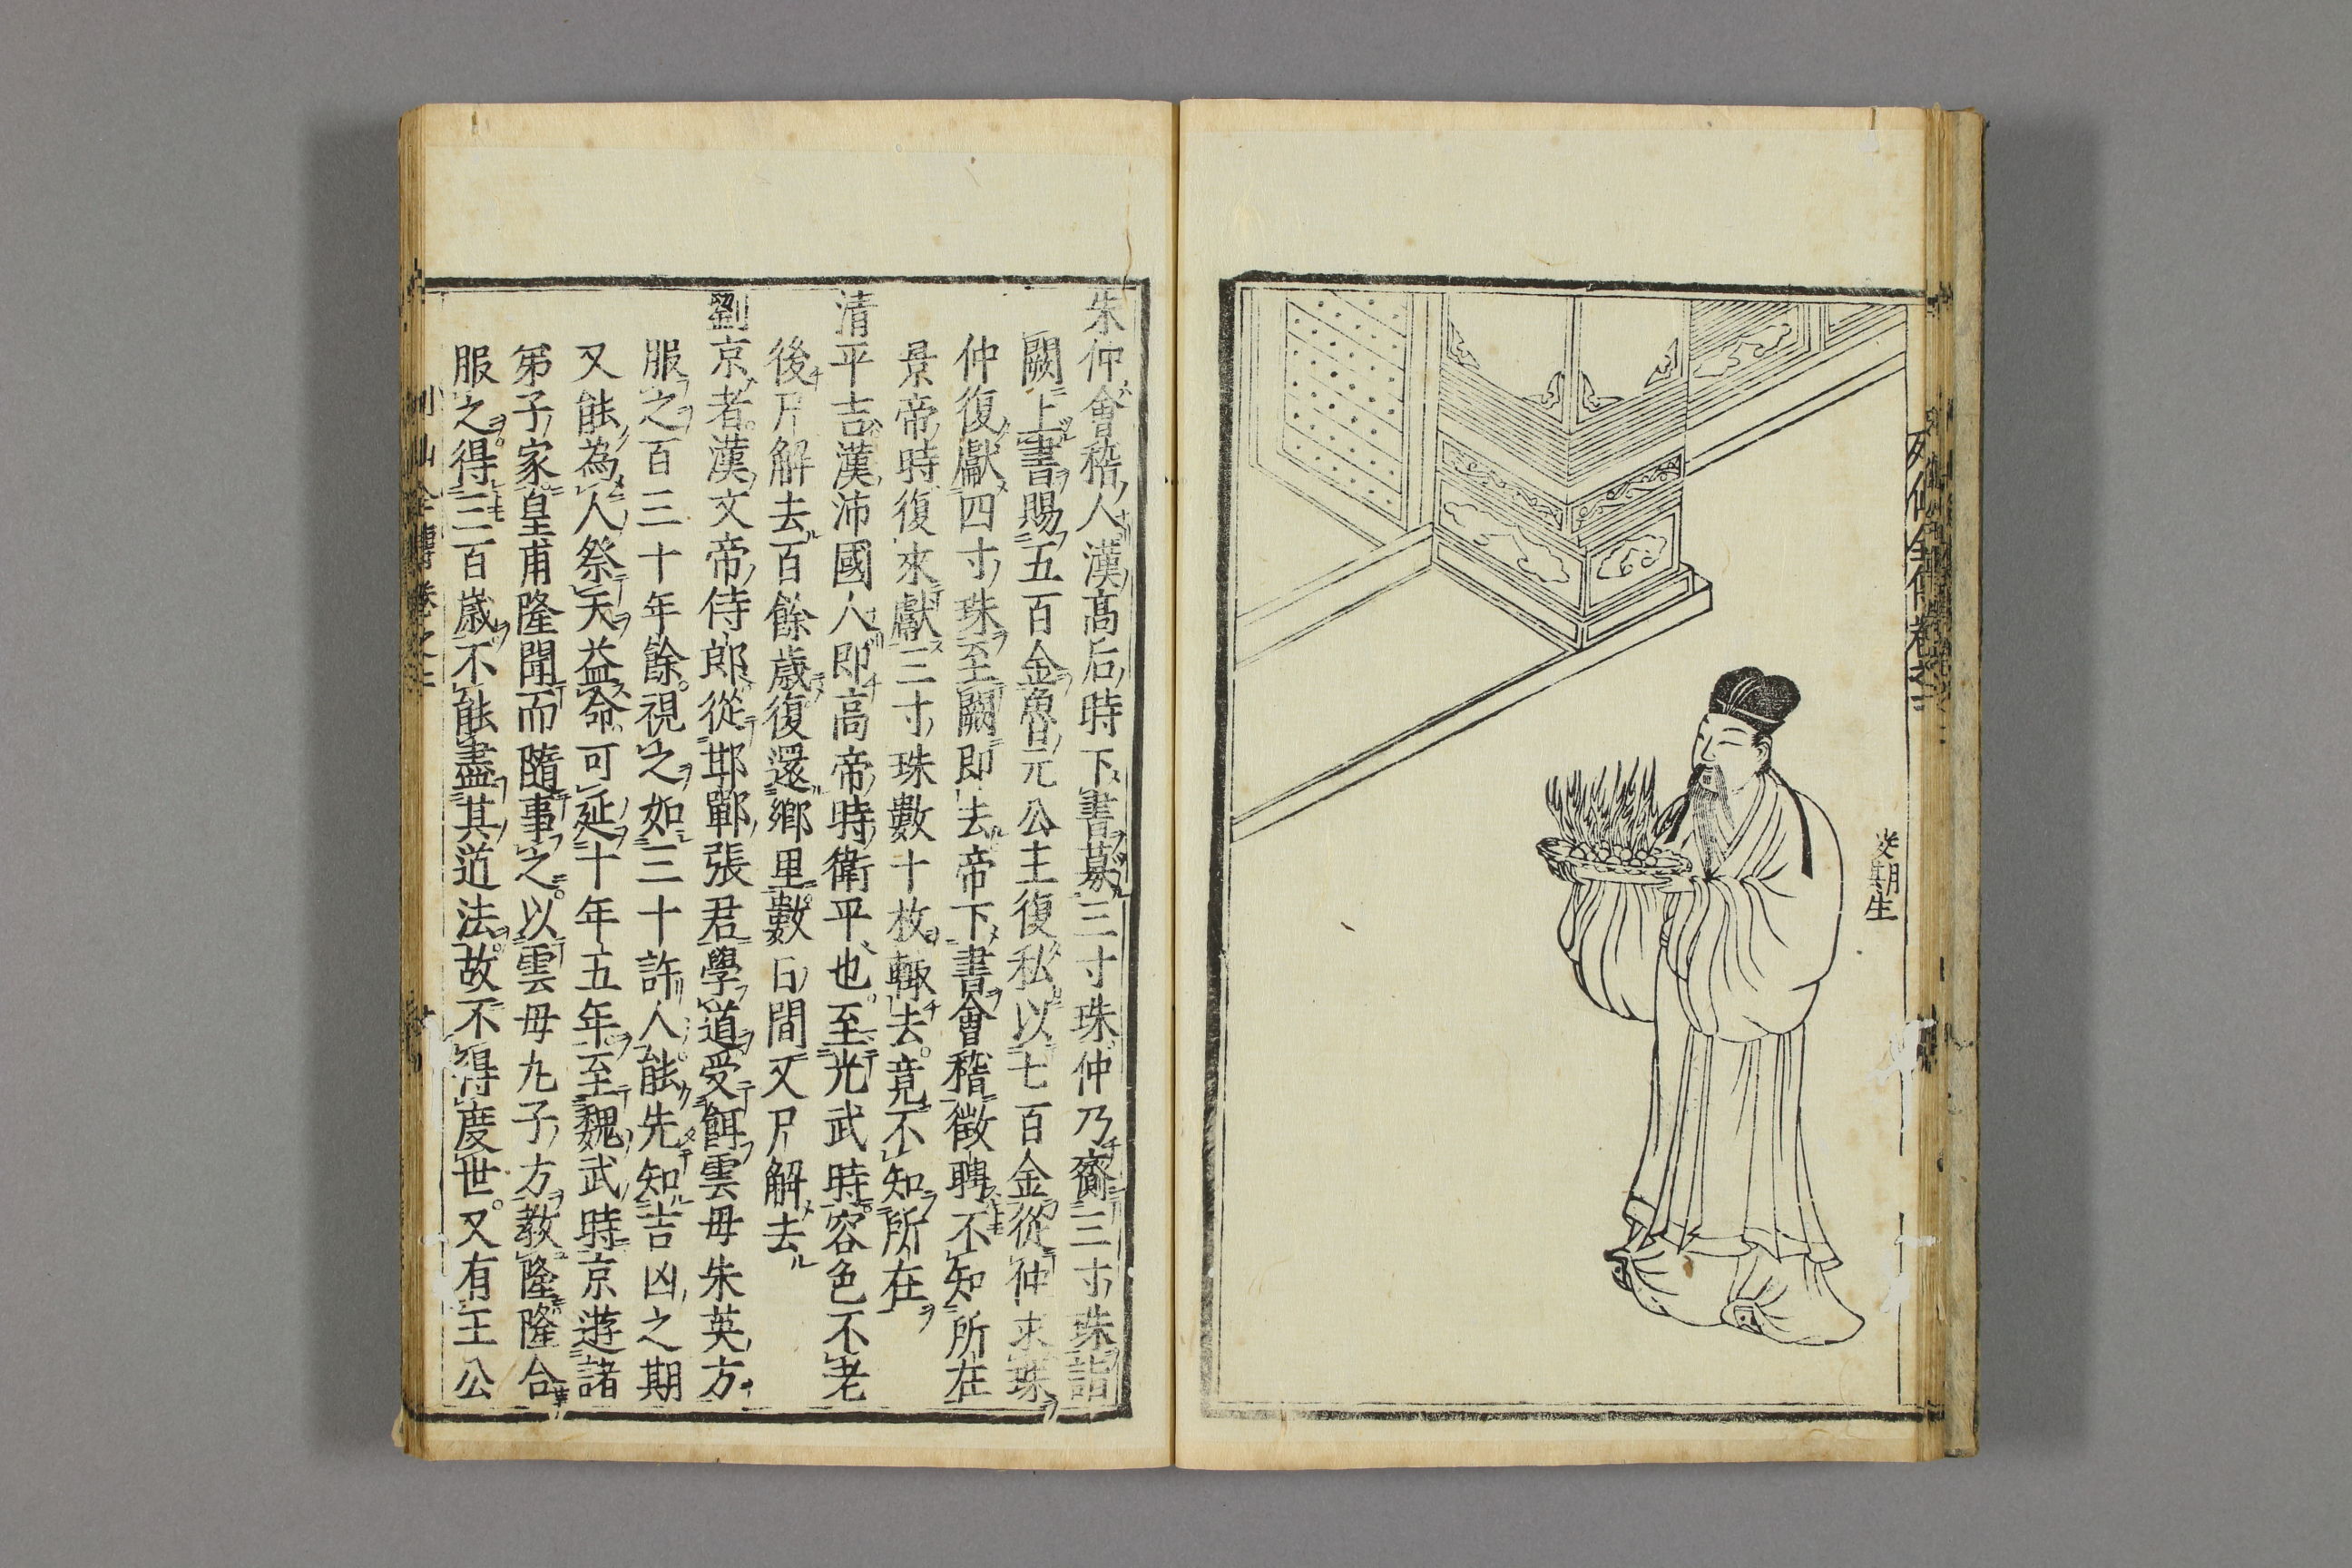 安期生
朱仲會稽人漢高后時下書募三寸珠仲乃齎三寸珠詣
闕上書賜五百金魯元公主復私以七百金從仲求珠
仲復獻四寸珠至闕即去帝下書會稽徵聘不知所在
景帝時復來獻三寸珠數十枚輙去竟不知所在
清平吉漢沛國人即高帝時衛平也。至光武時。容色不老
後尸解去百餘歲復還鄉里。數日間又尸解去
劉京者。漢文帝侍郎從邯鄲張君學道受餌雲毋朱英方
服之百三十年餘。視之如三十許人。能先知吉凶之期
又能為人祭天益命。可延十年五年至魏武時京遊諸
弟子家。皇甫隆聞而隨事之。以雲毋九子方教隆隆合
服之。得三百歲不能盡其道法。故不得度世。又有王公